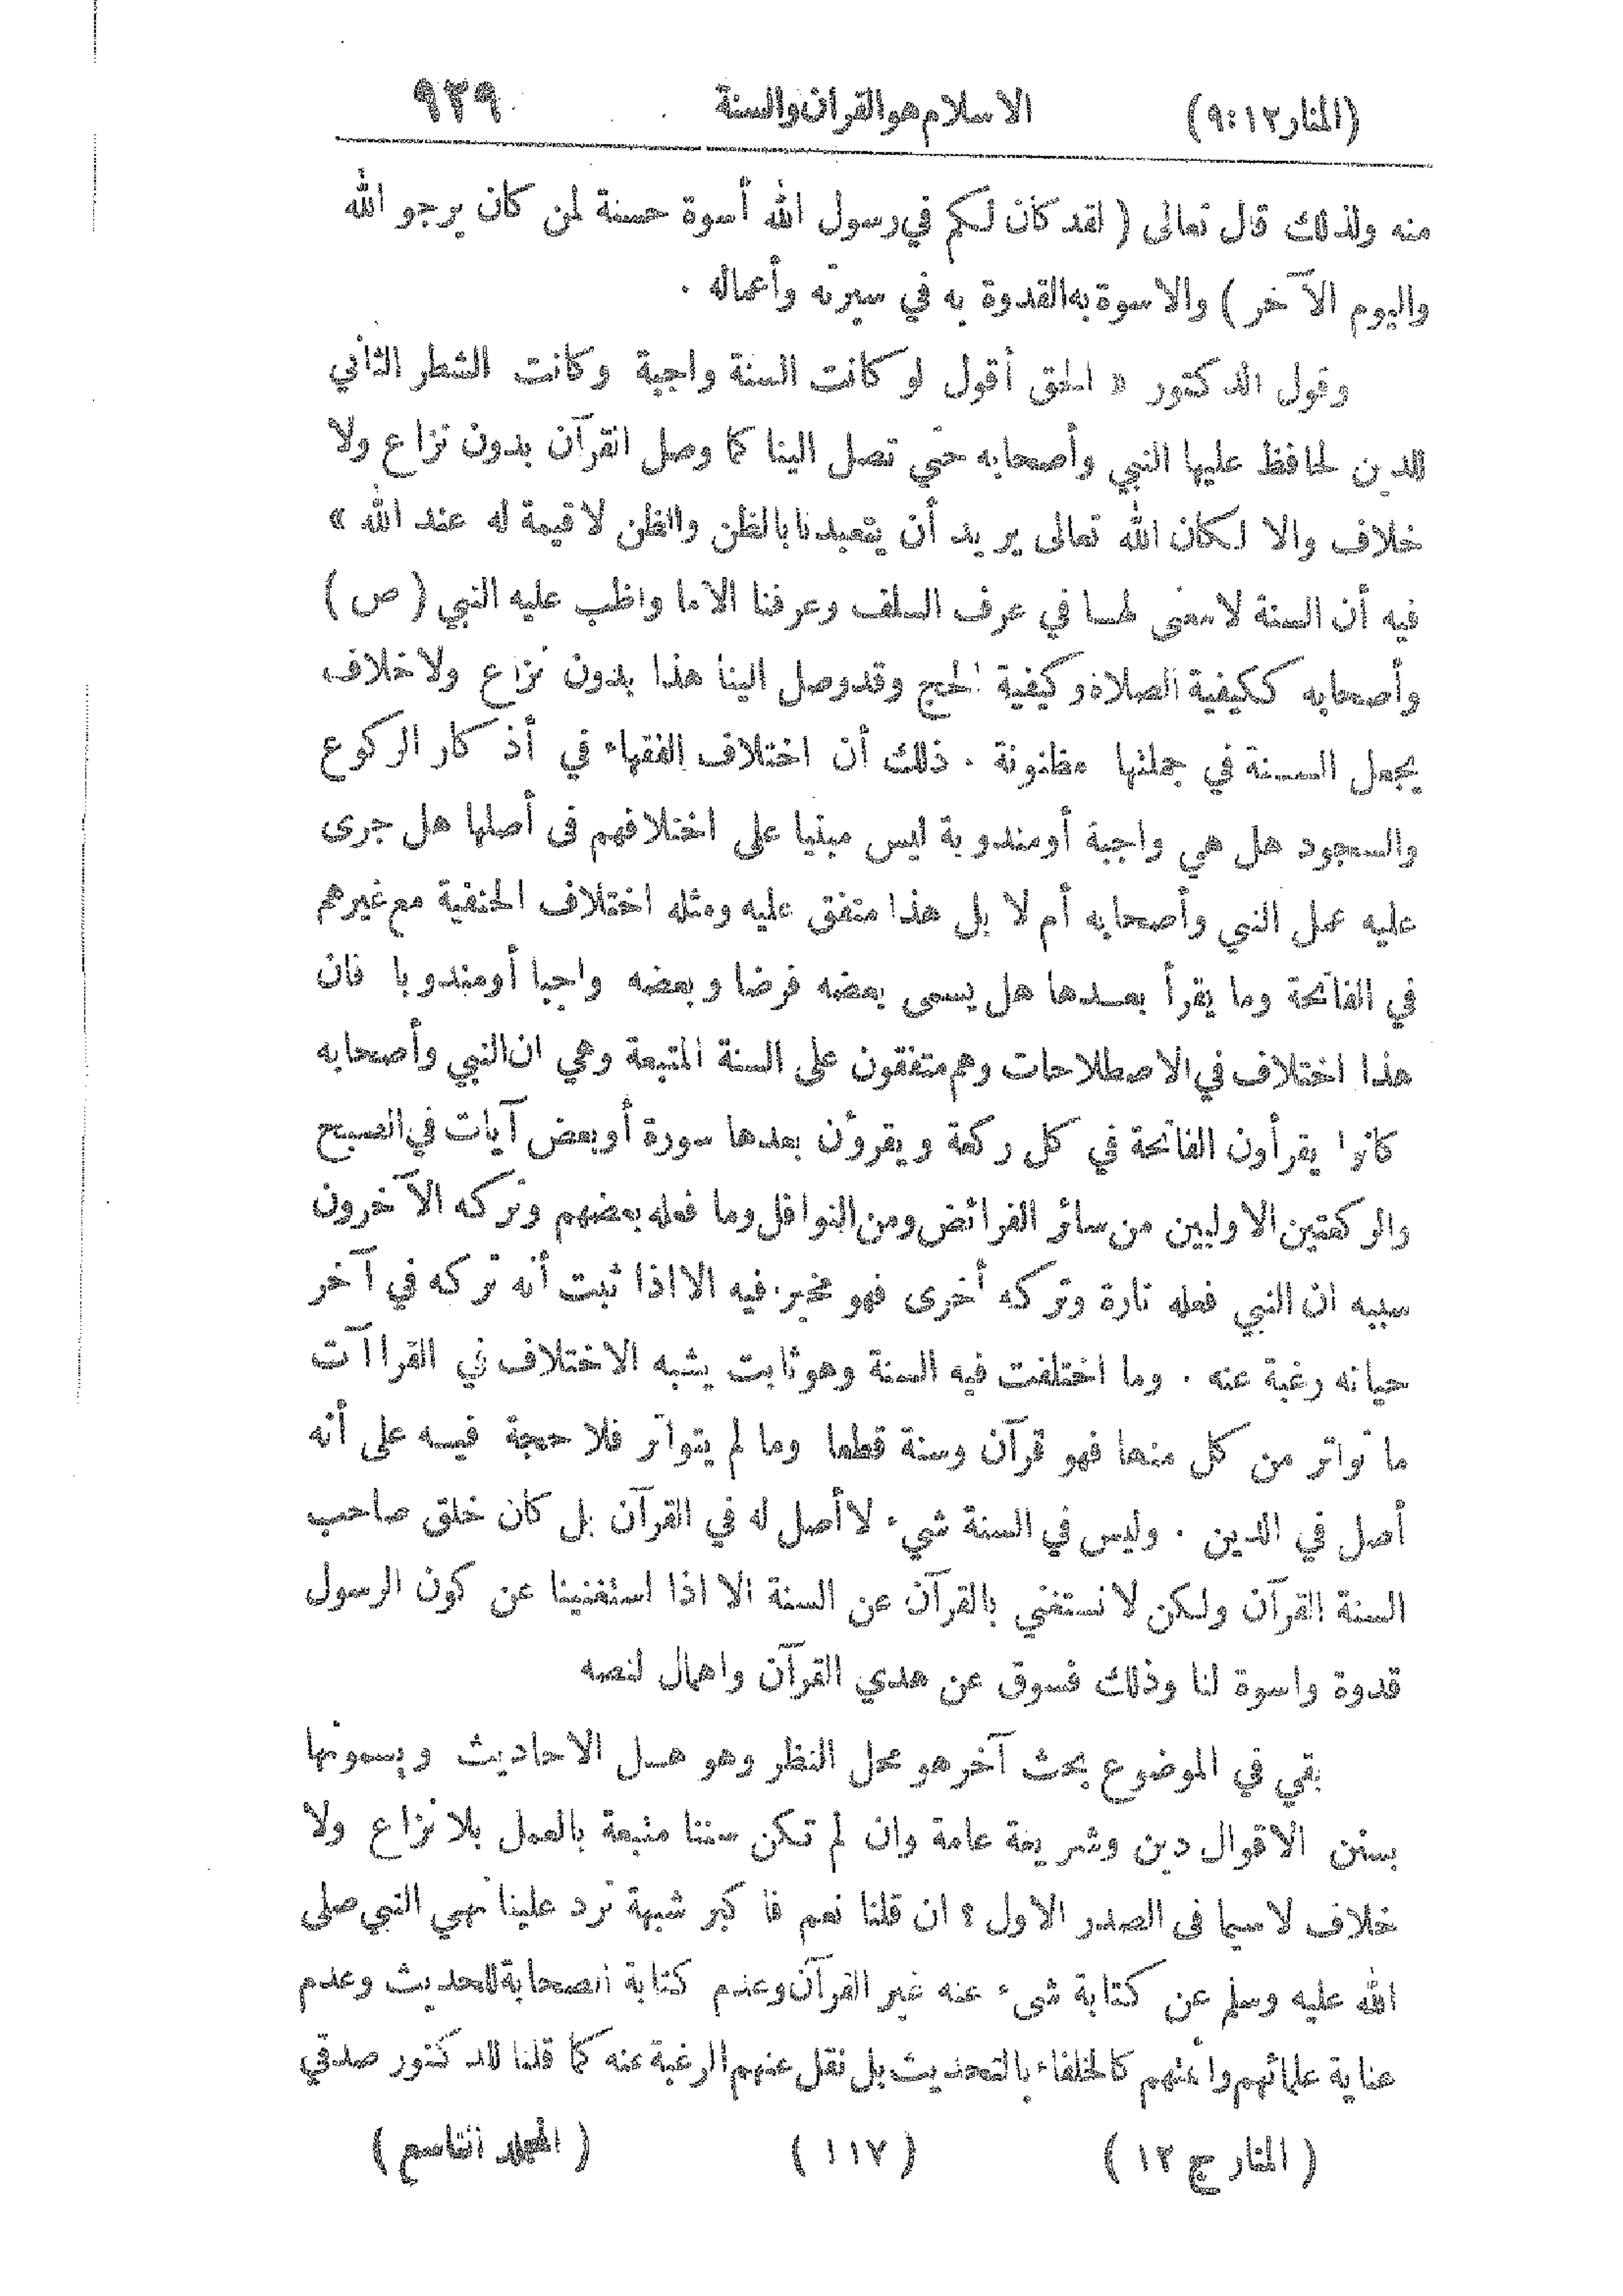 (المنار ١٢:٩) الاسلام هو القرآن والسنة ٩٢٩
منه ولذلك قال تعالى ( لقد كان لكم في رسول الله أسوة حسنة لمن كان يرجو الله
واليوم الآخر ) والاسوة به القدوة به في سيرته وأعماله .
وقول الدكتور « الحق أقول لو كانت السنة واجبة وكانت الشطر الثاني
للدين لحافظ عليها النبي وأصحابه حتى تصل الينا كما وصل القرآن بدون نزاع ولا
خلاف والا لكان الله تعالى يريد أن يتعبدنا بالظن والظن لا قيمة له عند الله »
فيه أن السنة لا معنى لها في عرف السلف وعرفنا الا ما واظب عليه النبي ( ص )
وأصحابه ككيفية الصلاة وكيفية الحج وقد وصل الينا هذا بدون نزاع ولا خلاف
يجعل السنة في جملتها مظنونة . ذلك أن اختلاف الفقهاء في أذكار الركوع
والسجود هل هي واجبة أو مندوبة ليس مبنيا على اختلافهم في أصلها هل جرى
عليه عمل النبي وأصحابه أم لا بل هذا متفق عليه ومثله اختلاف الحنفية مع غيرهم
في الفاتحة وما يقرأ بعدها هل يسمى بعضه فرضا وبعضه واجبا أو مندوبا فان
هذا اختلاف في الاصطلاحات وهم متفقون على السنة المتبعة وهي ان النبي وأصحابه
كانوا يقرأون الفاتحة في كل ركعة ويقرؤن بعدها سورة أو بعض آيات في الصبح
والركعتين الاوليين من سائر الفرائض ومن النوافل وما فعله بعضهم وتركه الآخرون
سببه ان النبي فعله تارة وتركه أخرى فهو مخير فيه الا اذا ثبت أنه تركه في آخر
حياته رغبة عنه . وما اختلفت فيه السنة وهو ثابت يشبه الاختلاف في القراآت
ما تواتر من كل منها فهو قرآن وسنة قطعا وما لم يتواتر فلا حجة فيه على أنه
أصل في الدين . وليس في السنة شيء لا أصل له في القرآن بل كان خلق صاحب
السنة القرآن ولكن لا نستغني بالقرآن عن السنة الا اذا استغنينا عن كون الرسول
قدوة واسوة لنا وذلك فسوق عن هدي القرآن واهمال لنصه
بقي في الموضوع بحث آخر هو محل النظر وهو هل الاحاديث ويسمونها
بسنن الاقوال دين وشريعة عامة وان لم تكن سننا متبعة بالعمل بلا نزاع ولا
خلاف لا سيما في الصدر الاول ؟ ان قلنا نعم فأكبر شبهة ترد علينا نهي النبي صلى
الله عليه وسلم عن كتابة شيء عنه غير القرآن وعدم كتابة الصحابة للحديث وعدم
عناية علمائهم وأئمتهم كالخلفاء بالتحديث بل نقل عنهم الرغبة عنه كما قلنا للدكتور صدقي
( المنار ج ١٢ ) ( ١١٧ ) ( المجلد التاسع )